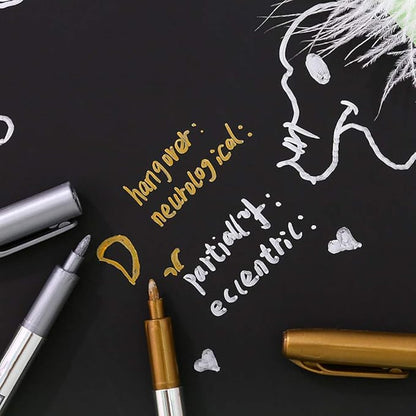 hangover:
neurological:
partially:
eccentric: